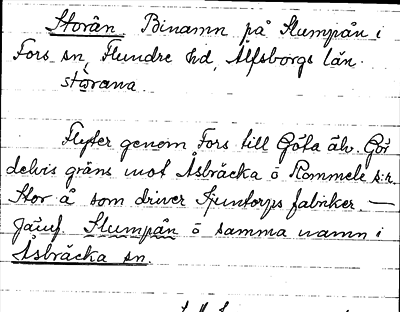 Storån Binamn på Slumpån i
Fors sn, Flundre hd, Älfsborgs län.
stωrana
Flyter genom Fors till Göta älv. Gör
delvis gräns mot Åsbräcka o Rommele s:r.
Stor å som driver Sjuntorps fabriker. —
Jämf. Slumpån o samma namn i
Åsbräcka sn.